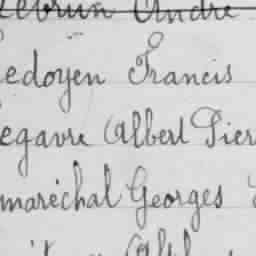 Lebrun André
Ledoyen Francis
Legavre Albert Pier
maréchal Georges